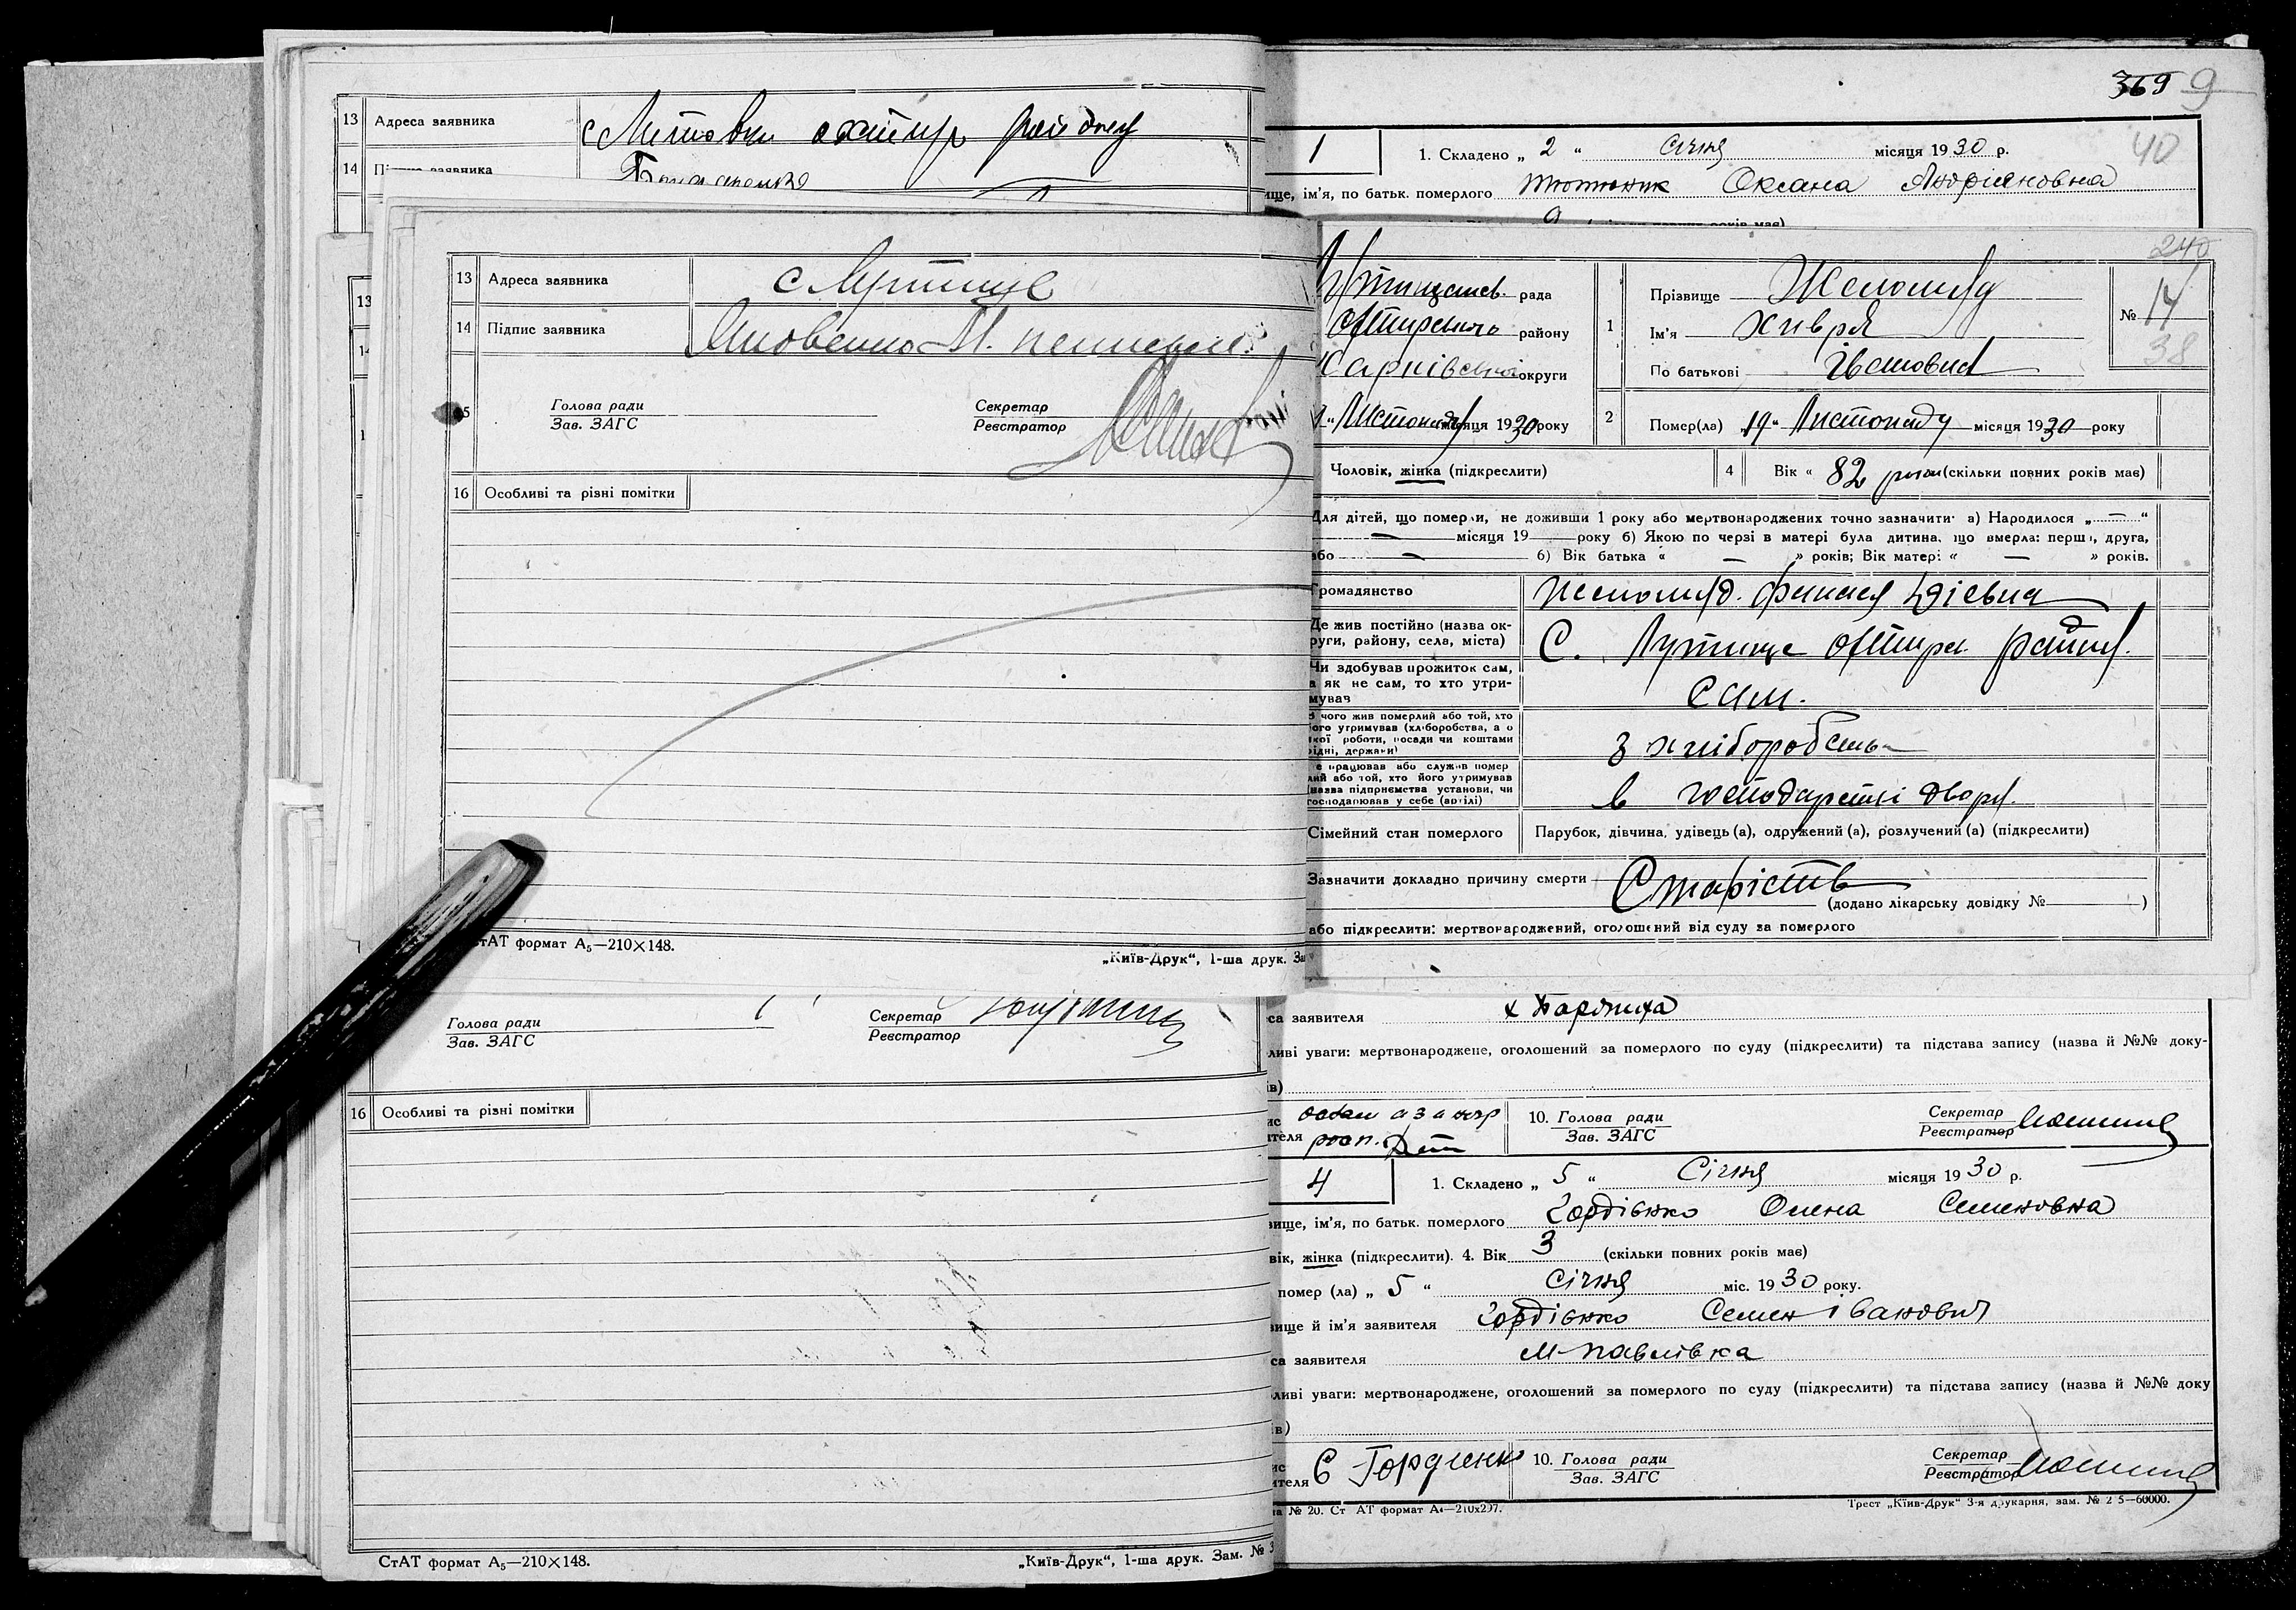 13 Адреса заявника
14 заявника
13 Адреса заявника с Лутище
14 Підпис заявника Яковенко М.
15 Голова ради Секретар
Зав. ЗАГС Реєстратор
16 Особливі та різні помітки
СтАТ формат А₅—210×148.
„Київ-Друк“, 1-ша друк. За
Голова ради Секретар
Зав. ЗАГС Реєстратор
16 Особливі та різні помітки
СтАТ формат А₅—210×148.
„Київ-Друк“, 1-ша друк. Зам. №
369 9
40
1 1. Складено „ 2 “ Січня місяця 1930 р.
ім’я, по батьк. померлого Тютюник Оксана Андріяновна
240
рада 1 Прізвище
району Ім’я Хивря № 14
Харківської округи По батькові Івановна 38
Листопада місяця 1930 року 2 Помер(ла) „19“ Листопаду місяця 1930 року
Чоловік, жінка (підкреслити) 4 Вік « 82 роки (скільки повних років має)
Для дітей, що померли, не доживши 1 року або мертвонароджених точно зазначити: а) Народилося „—“
— місяця 19— року б) Якою по черзі в матері була дитина, що вмерла: перша, друга,
або — 6) Вік батька « — » років; Вік матері « — » років.
Громадянство
Де жив постійно (назва ок-
руги, району, села, міста) С. Лутище Охтирс. району
Чи здобував прожиток сам,
а як не сам, то хто утри-
мував сам.
З чого жив померлий або той, хто
його утримував (хліборобства, а о
якої роботи, посади чи коштами
рідні, держави) з хліборобства
Де працював або служив помер
лий або той, хто його утримував
(назва підприємства установи, чи
господарював у себе (артілі) в господарстві двора.
Сімейний стан померлого Парубок, дівчина, удівець (а), одружений (а), розлучений (а) (підкреслити)
Зазначити докладно причину смерти Старість
(додано лікарську довідку № —)
або підкреслити: мертвонароджений, оголошений від суду за померлого
са заявителя х Бардиха
ливі уваги: мертвонароджене, оголошений за померлого по суду (підкреслити) та підстава запису (назва й №№ доку-
ів)
10. Голова ради Секретар
Зав. ЗАГС Реєстратор
4 1. Складено „ 5 “ Січня місяця 1930 р.
вище, ім’я, по батьк. померлого Гордієнко Олена Семеновна
вік, жінка (підкреслити). 4. Вік 3 (скільки повних років має)
помер (ла) „ 5 “ Січня міс. 1930 року.
вище й ім’я заявителя Гордієнко Семен Іванович
са заявителя М-Павлівка
ливі уваги: мертвонароджене, оголошений за померлого по суду (підкреслити) та підстава запису (назва й №№ доку
ів)
ителя Є Гордиенко 10. Голова ради Секретар
Зав. ЗАГС Реєстратор
№ 20. Ст АТ формат А₄—210х297.
Трест „Київ-Друк“ 3-я друкарня, зам. № 2 5—60000.